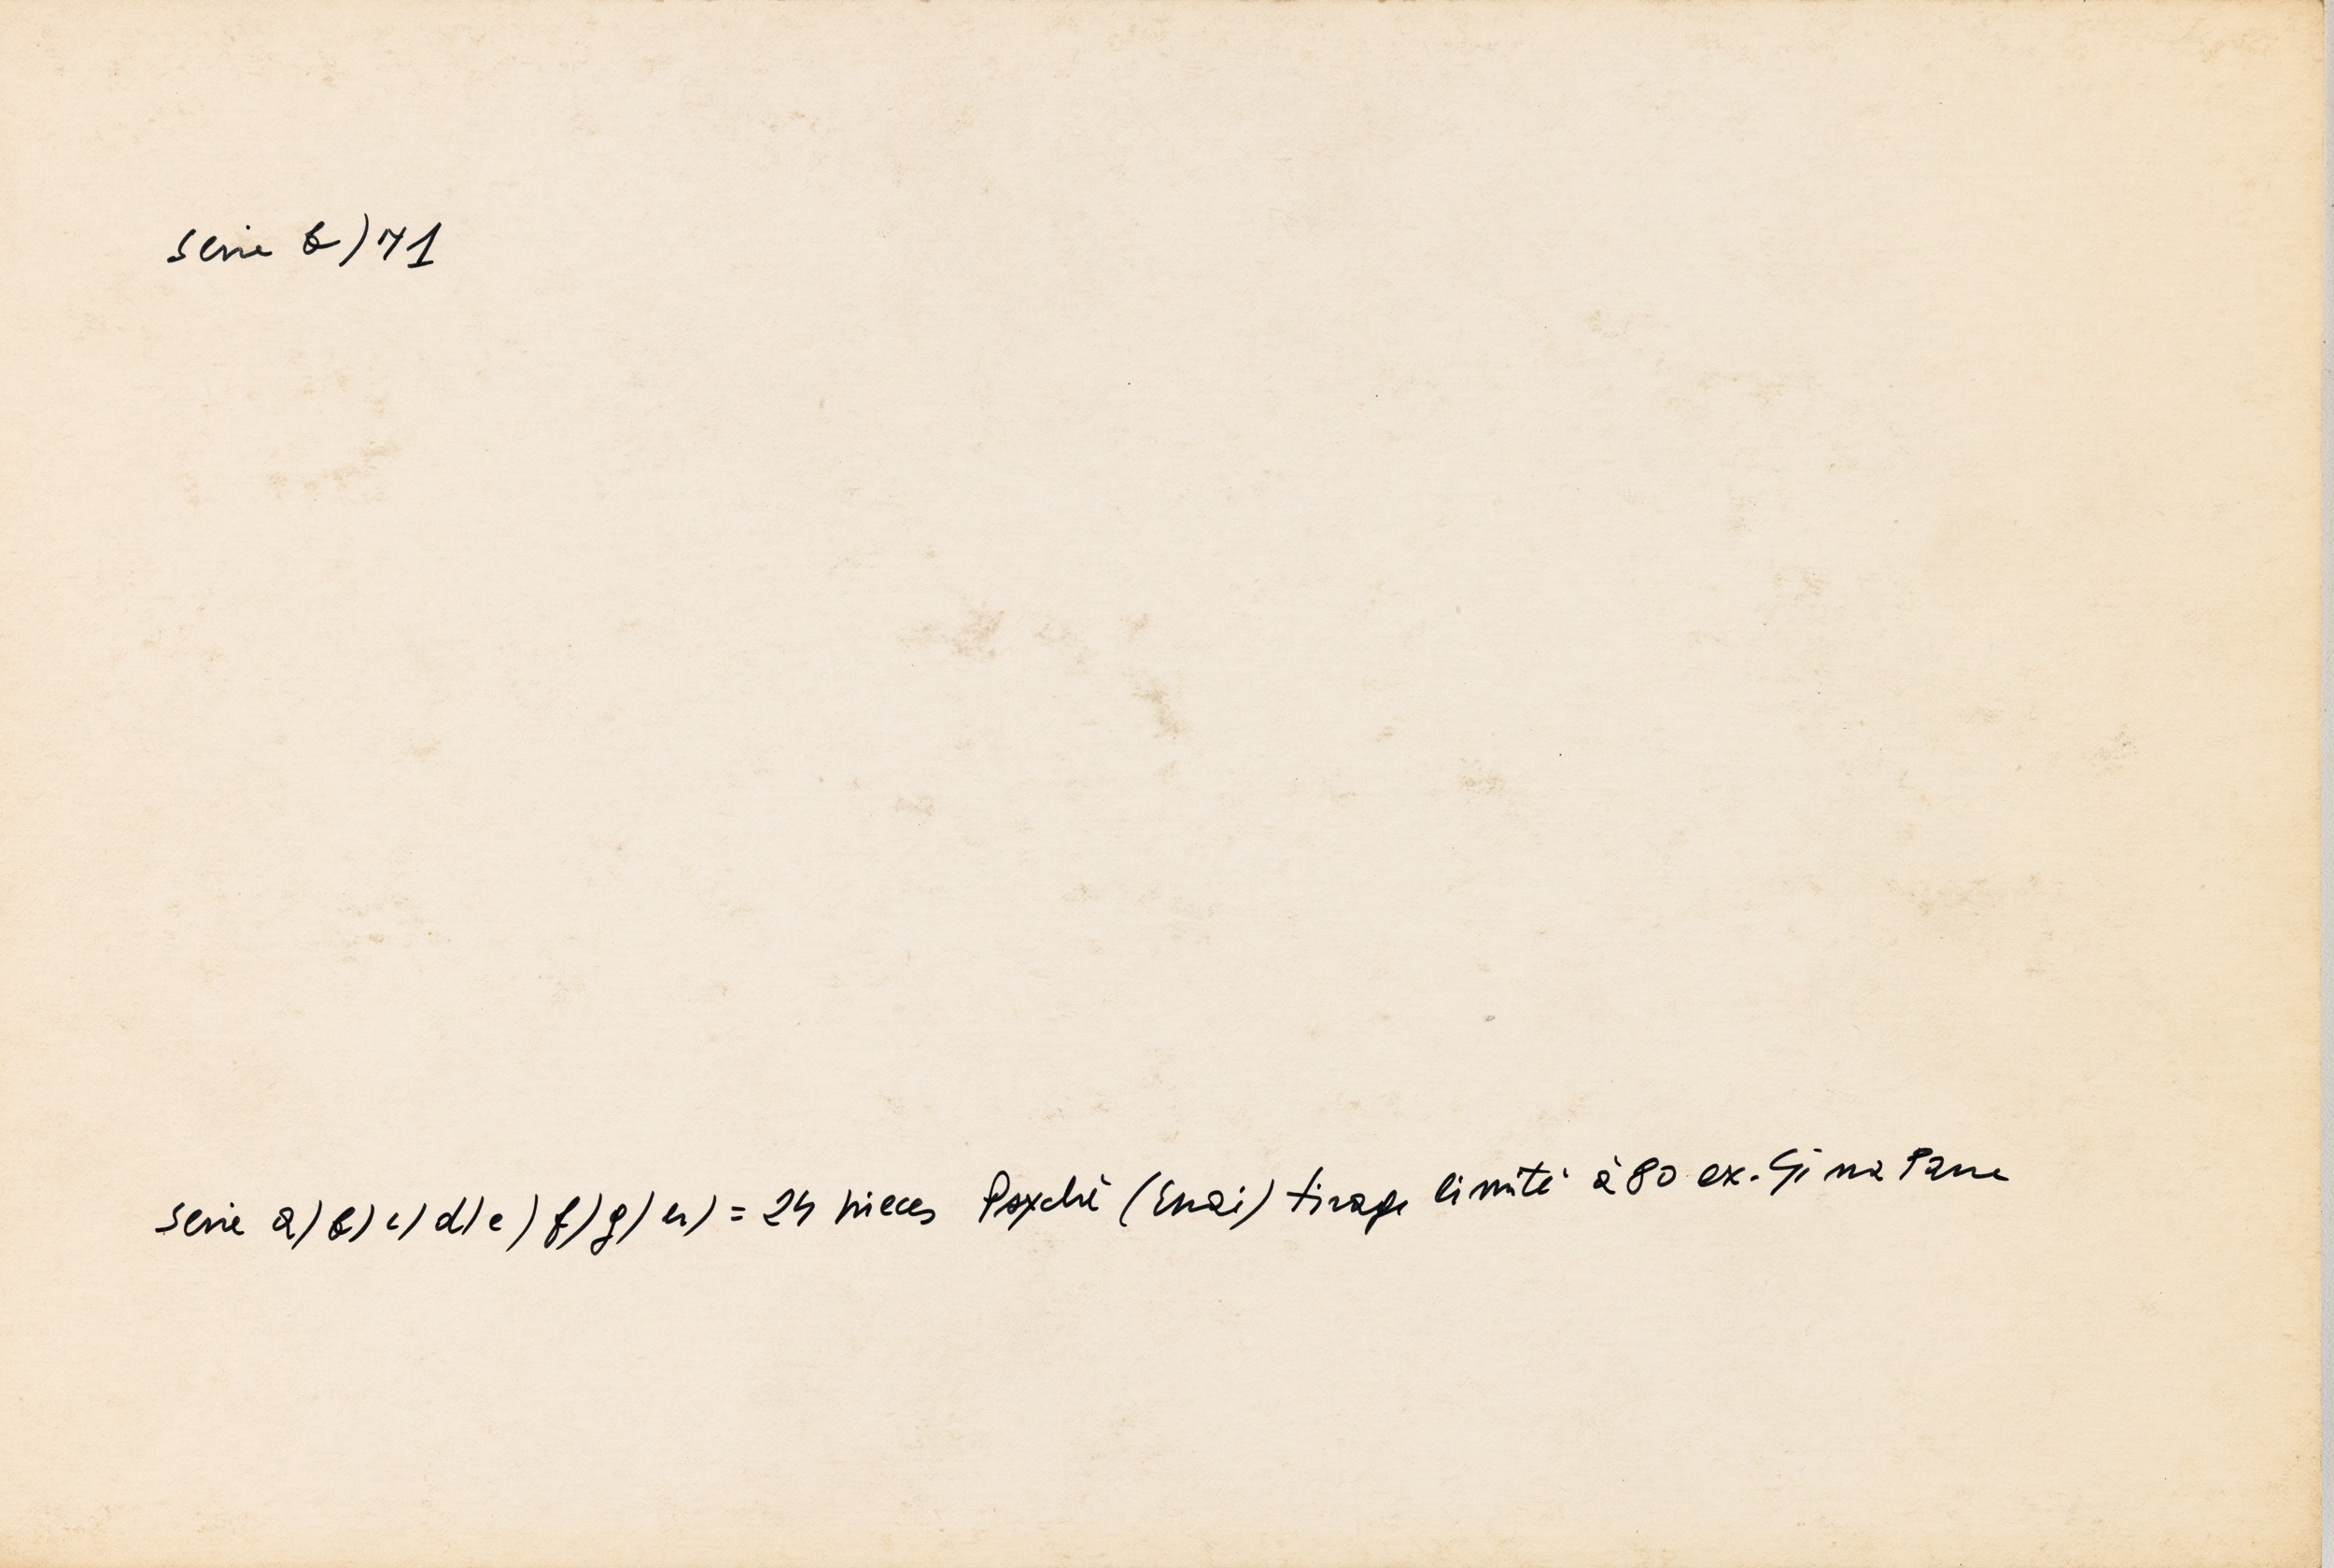 serie b) 71
serie a) b) c) d) e) f) g) h) = 24 pieces Psyché (Essai) tirage limité à 80 ex. Gina Pane